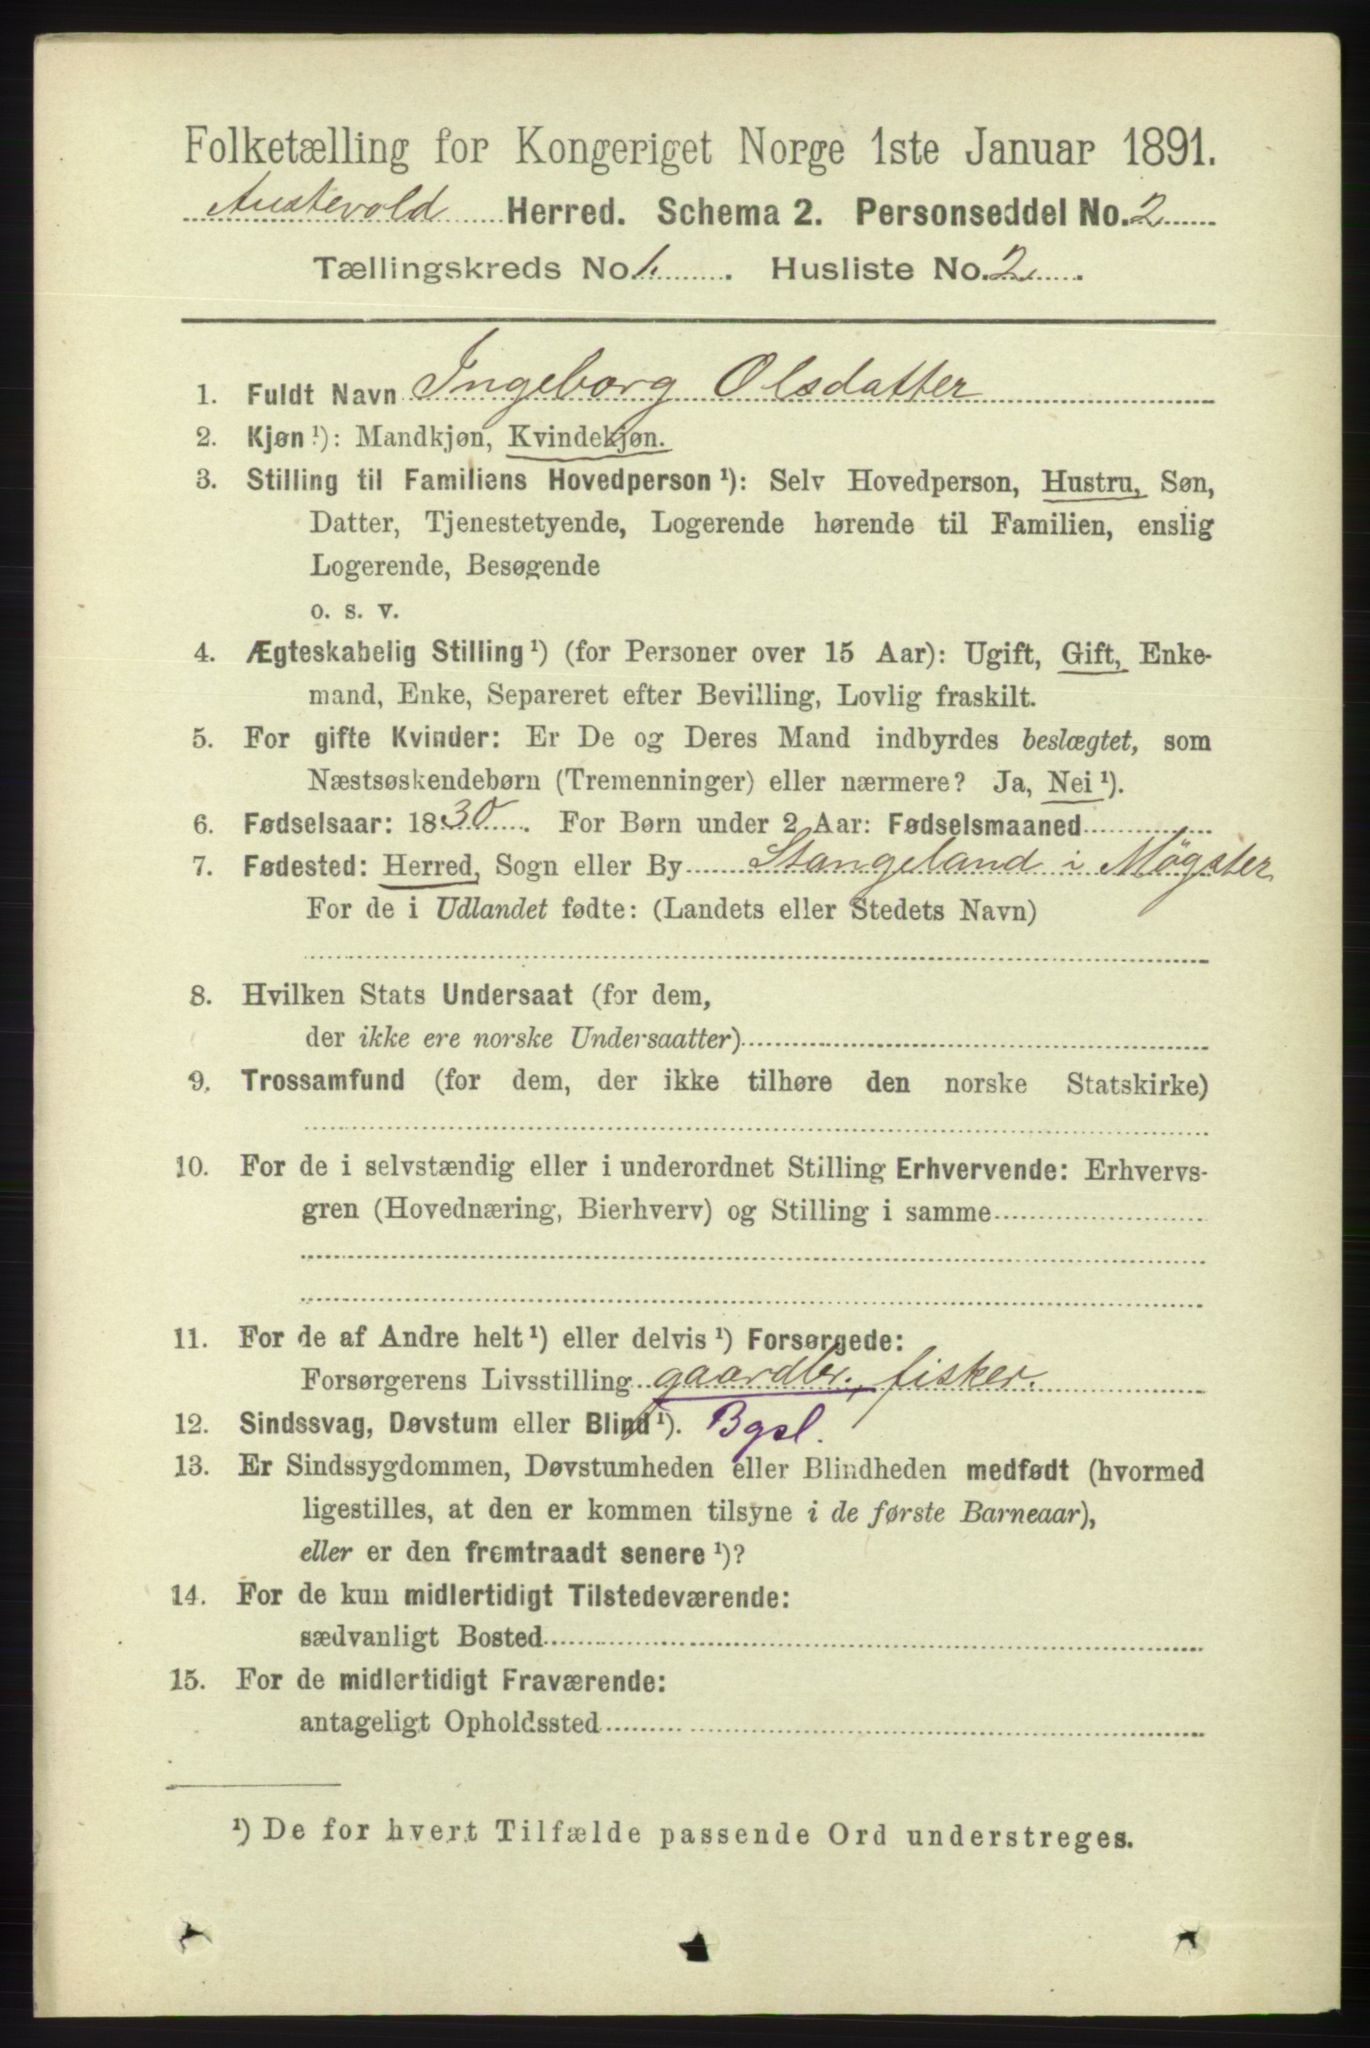 Folketælling for Kongeriget Norge 1ste Januar 1891.
Austevold Herred. Schema 2. Personseddel No. 2
Tællingskreds No. 1. Husliste No. 2.
1. Fuldt Navn Ingeborg Olsdatter
2. Kjøn ¹): Mandkjøn, Kvindekjøn.
3. Stilling til Familiens Hovedperson ¹): Selv Hovedperson, Hustru, Søn,
Datter, Tjenestetyende, Logerende hørende til Familien, enslig
Logerende, Besøgende
o. s. v.
4. Ægteskabelig Stilling ¹) (for Personer over 15 Aar): Ugift, Gift, Enke-
mand, Enke, Separeret efter Bevilling, Lovlig fraskilt.
5. For gifte Kvinder: Er De og Deres Mand indbyrdes beslægtet, som
Næstsøskendebørn (Tremenninger) eller nærmere? Ja, Nei ¹).
6. Fødselsaar: 1830. For Børn under 2 Aar: Fødselsmaaned
7. Fødested: Herred, Sogn eller By Stangeland i Møgster
For de i Udlandet fødte: (Landets eller Stedets Navn)
8. Hvilken Stats Undersaat (for dem,
der ikke ere norske Undersaatter)
9. Trossamfund (for dem, der ikke tilhøre den norske Statskirke)
10. For de i selvstændig eller i underordnet Stilling Erhvervende: Erhvervs-
gren (Hovednæring, Bierhverv) og Stilling i samme
11. For de af Andre helt ¹) eller delvis ¹) Forsørgede:
Forsørgerens Livsstilling gaardbr., fisker.
12. Sindssvag, Døvstum eller Blind ¹). Bgsl.
13. Er Sindssygdommen, Døvstumheden eller Blindheden medfødt (hvormed
ligestilles, at den er kommen tilsyne i de første Barneaar),
eller er den fremtraadt senere ¹)?
14. For de kun midlertidigt Tilstedeværende:
sædvanligt Bosted
15. For de midlertidigt Fraværende:
antageligt Opholdssted
¹) De for hvert Tilfælde passende Ord understreges.